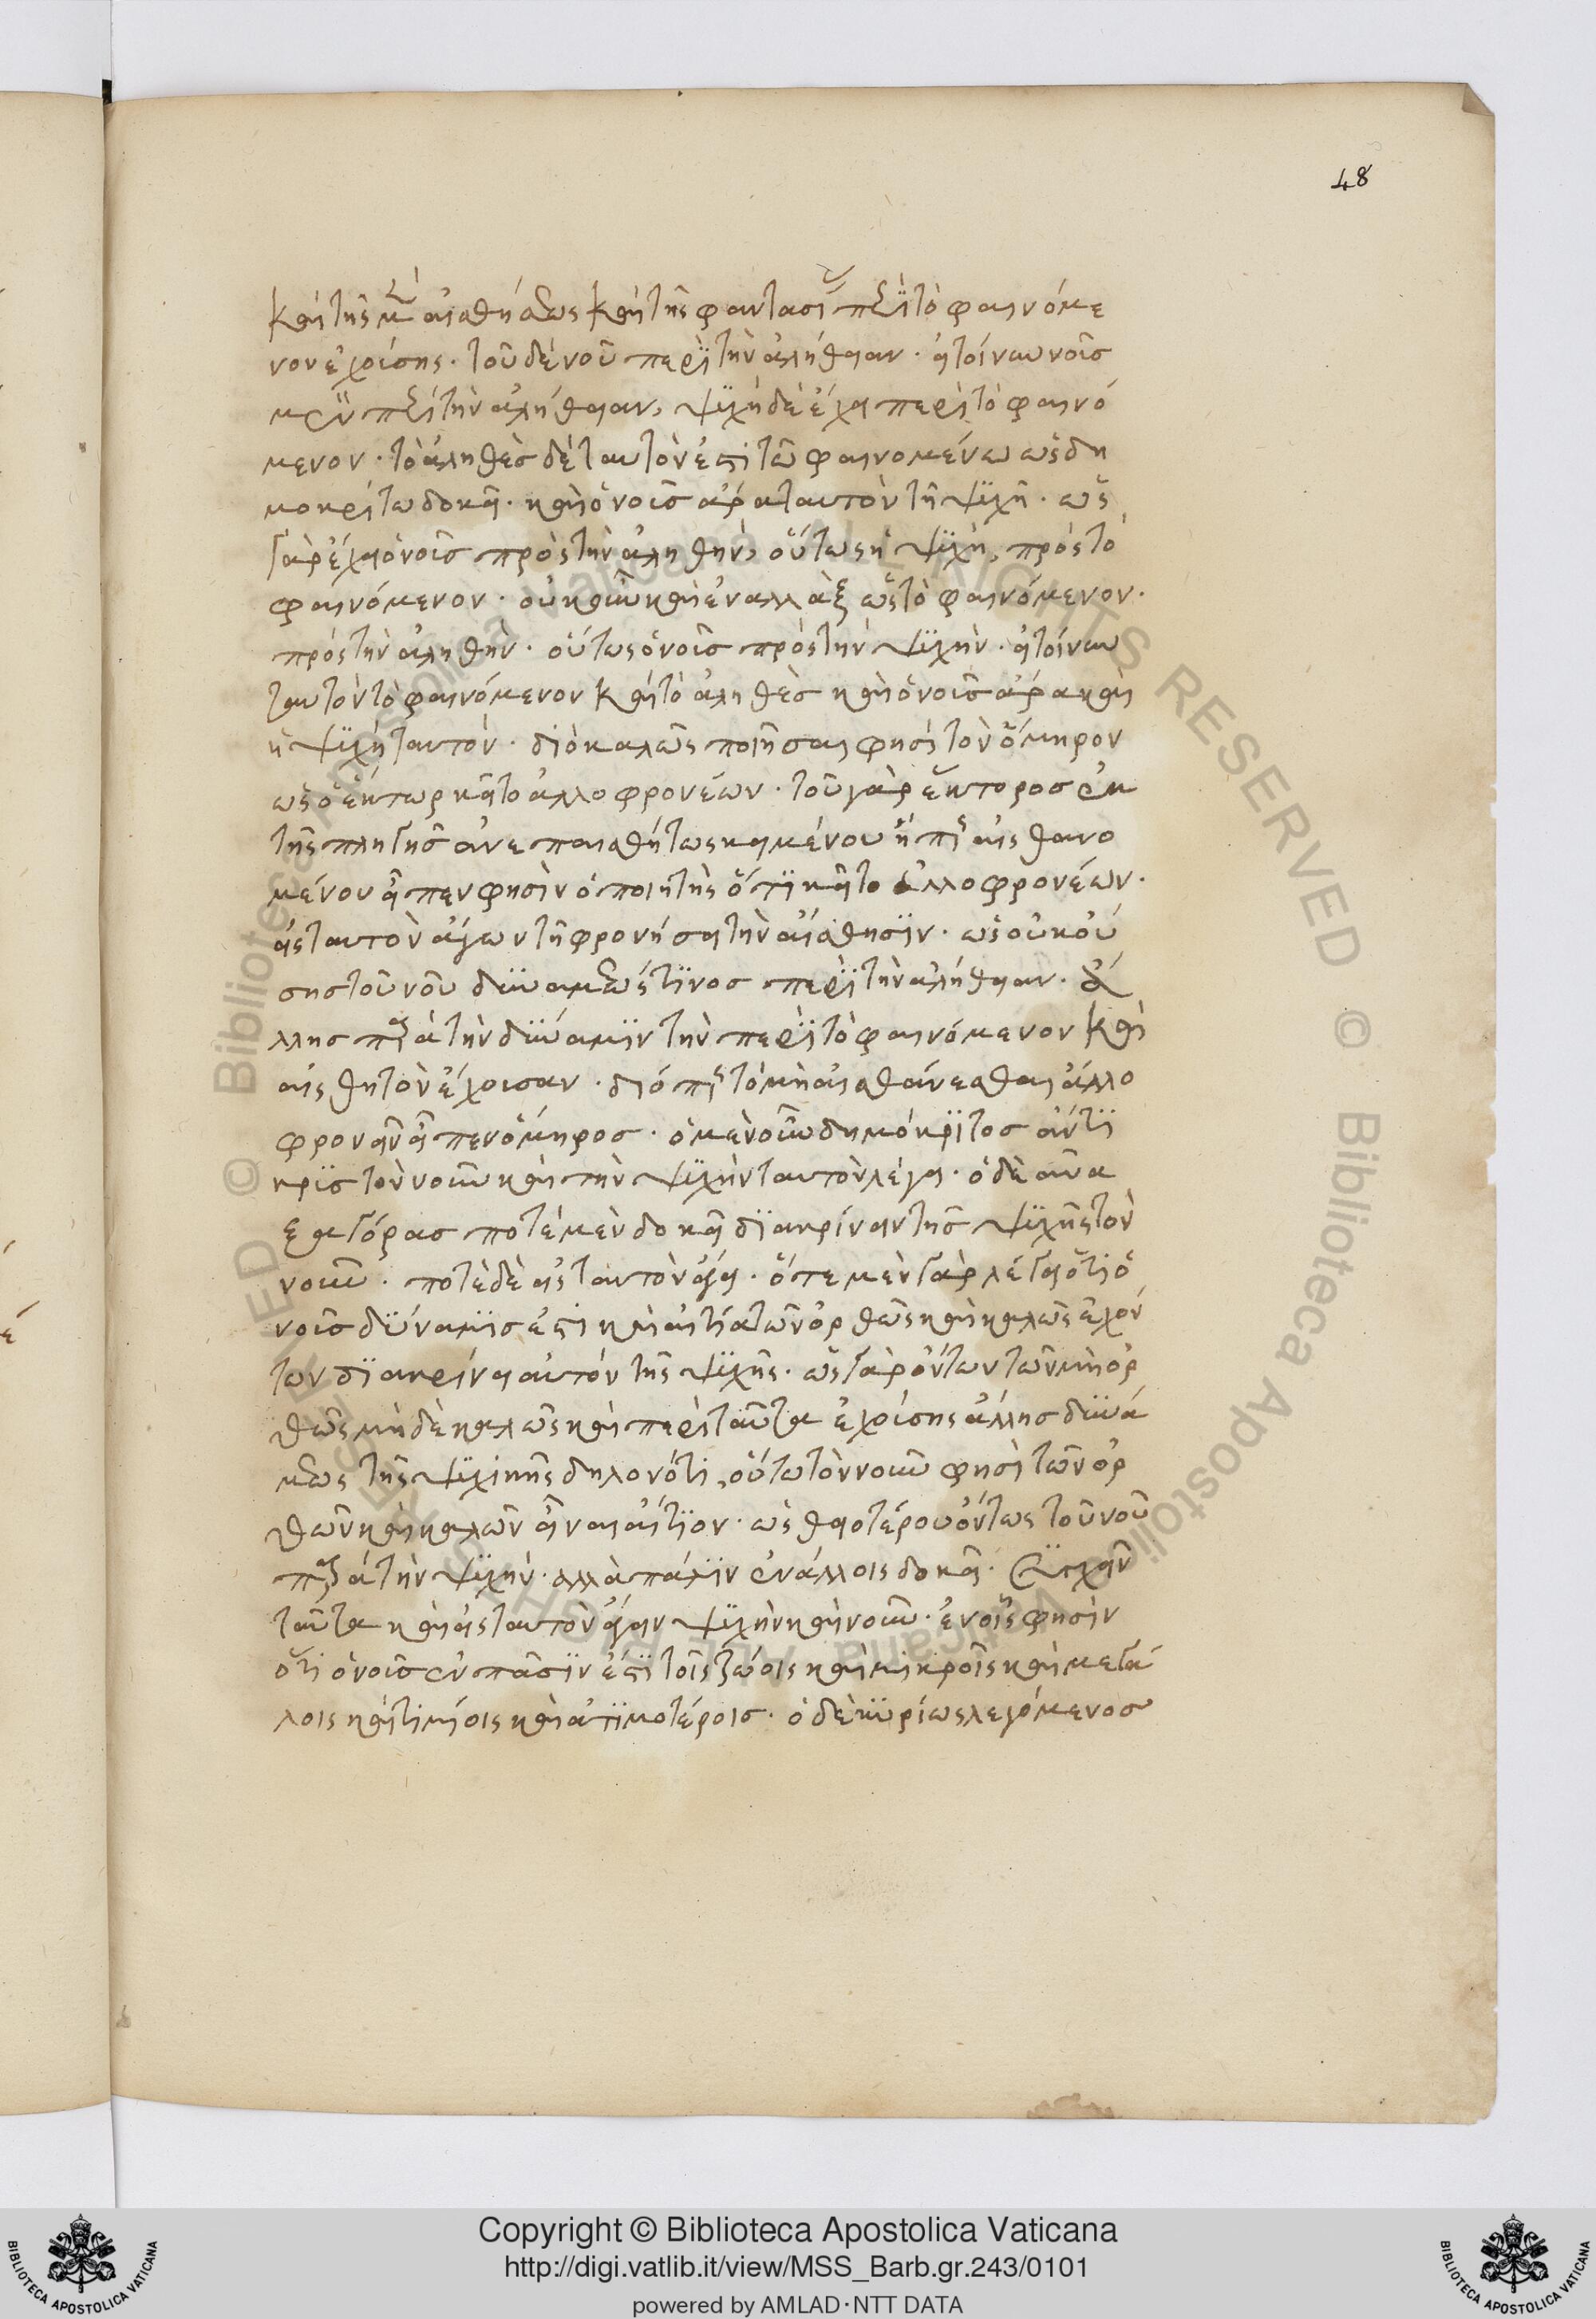 48
καὶ τῆς μὲν αἰσθήσεως καὶ τῆς φαντασίας περὶ τὸ φαινόμε
νον ἐχούσης· τοῦ δὲ νοῦ περὶ τὴν ἀλήθειαν· εἰ τοίνυν νοῦς
μὲν περὶ τὴν ἀλήθειαν, ψυχὴ δὲ ἔχει περὶ τὸ φαινό
μενον· τὸ ἀληθὲς δὲ ταυτόν ἐστι τῶ φαινομένω ὡς δη
μοκρίτω δοκεῖ· καὶ ὁ νοῦς ἄρα ταυτὸν τῆ ψυχῆ· ὡς
γὰρ ἔχει ὁ νοῦς πρὸς τὴν ἀληθην, οὕτως ἡ ψυχὴ, πρὸς τὸ
φαινόμενον· οὐκοῦν καὶ ἐναλλὰξ ὡς τὸ φαινόμενον·
πρὸς τὴν ἀληθην· οὕτως ὁ νοῦς πρὸς τὴν ψυχὴν· εἰ τοίνυν
ταυτὸν τὸ φαινόμενον καὶ τὸ ἀληθὲς καὶ ὁ νοῦς ἄρα καὶ
ἡ ψυχὴ ταυτόν· διὸ καλῶς ποιῆσαι φησὶ τὸν ὅμηρον
ὡς ὁ ἕκτωρ κεῖτο ἀλλοφρονέων· τοῦ γὰρ ἕκτορος ἐκ
τῆς πληγῆς ἀνεπαισθήτως κειμένου ἤπερ αἰσθανο
μένου εἶπεν φησὶν ὁ ποιητὴς ὅτι κεῖτο ἀλλοφρονέων·
εἰς ταυτὸν ἄγων τῆ φρονήσει τὴν αἴσθησιν· ὡς οὐκ οὔ
σης τοῦ νοῦ δυνάμεώς τινος περὶ τὴν ἀλήθειαν· ἄ
λλης παρὰ τὴν δύναμιν τὴν περὶ τὸ φαινόμενον καὶ
αἰσθητὸν ἔχουσαν· διόπερ τὸ μὴ αἰσθάνεσθαι ἀλλο
φρονεῖν εἶπεν ὅμηρος· ὁ μὲν οὖν δημόκριτος ἀντι
κρὺς τὸν νοῦν καὶ τὴν ψυχὴν ταυτὸν λέγει· ὁ δὲ ἀνα
ξαγόρας ποτὲ μὲν δοκεῖ διακρίνειν τῆς ψυχῆς τὸν
νοῦν· ποτὲ δὲ εἰς ταυτὸν ἄγει· ὅτε μὲν γὰρ λέγει ὅτι ὁ
νοῦς δύναμις ἐστι καὶ αἰτία τῶν ὀρθῶς καὶ καλῶς ἐχόν
των διακρίνει αὐτόν τῆς ψυχῆς· ὡς γὰρ ὄντων τῶν μὴ ὀρ
θῶς μὴ δὲ καλῶς καὶ περὶ ταῦτα ἐχούσης ἄλλης δυνά
μεως τῆς ψυχικῆς δηλονότι, οὕτω τὸν νοῦν φησὶ τῶν ὀρ
θῶν καὶ καλῶν εἶναι αἴτιον· ὡς θειοτέρου ὄντως τοῦ νοῦ
παρὰ τὴν ψυχήν· ἀλλὰ πάλιν ἐν ἄλλοις δοκεῖ
ταῦτα καὶ εἰς ταυτὸν ἄγειν ψυχὴν καὶ νοῦν· ἐν οἷς φησὶν
ὅτι ὁ νοῦς ἐν πᾶσιν ἐστὶ τοῖς ζώοις καὶ μικροῖς καὶ μεγά
λοις καὶ τιμίοις καὶ ἀτιμοτέροις· ὁ δὲ κυρίως λεγόμενος
Copyright © Biblioteca Apostolica Vaticana
http://digi.vatlib.it/view/MSS_Barb.gr.243/0101
powered by AMLAD·NTT DATA